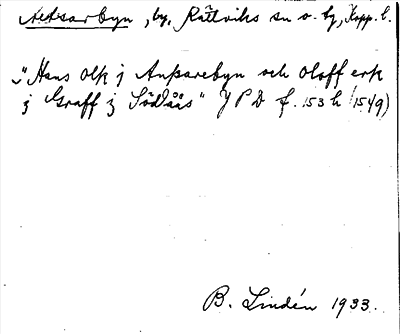 Aksarbyn, by, Rättviks sn o. tg, Kopp. l.
"Hans olk j Anxarebyn och oloff erk
j Graff j Södåås" JPD f. 153 h (1549)
B. Lindén 1933.